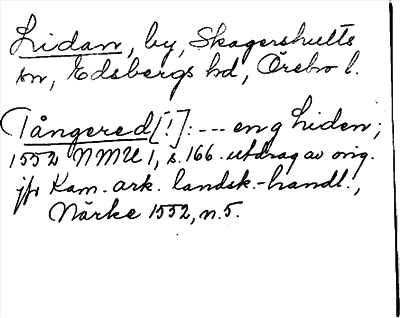 Lidan, by, Skagershults
sn, Edsbergs hd, Örebro l.
Tångered [!]: --- eng Liden;
1552 NMU 1, s. 166. utdrag av orig.
jfr Kam. ark. landsk.-handl.,
Närke 1552, n. 5.